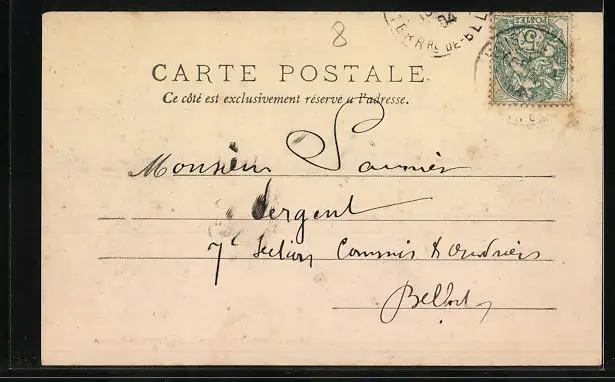 8
04
TERRRE DE-BEL
POSTES
CARTE POSTALE
Ce côté est exclusivement réservé a l'adresse.
Monsieur Saunier
Sergent
7e Section Commis & Ouvriers
Belfort